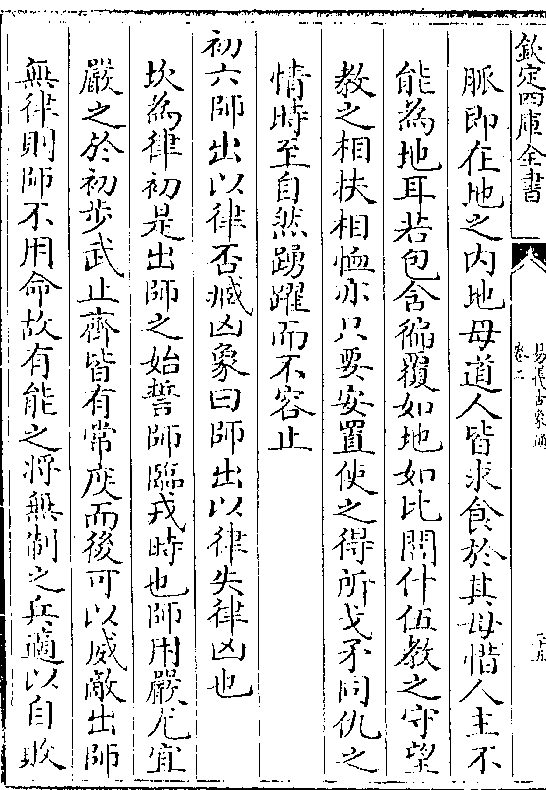 欽定四庫全書
易像古象通
卷二
十五
脈即在地之内地母道人皆求食於其母惜人主不
能為地耳若包含徧覆如地如比閭什伍教之守望
教之相扶相恤亦只要安置使之得所戈矛同仇之
情時至自然踴躍而不容止
初六師出以律否臧凶象曰師出以律失律凶也
坎為律初是出師之始誓師臨戎時也師用嚴尤宜
嚴之於初步武止齊皆有常度而後可以威敵出師
無律則師不用命故有能之將無制之兵適以自敗